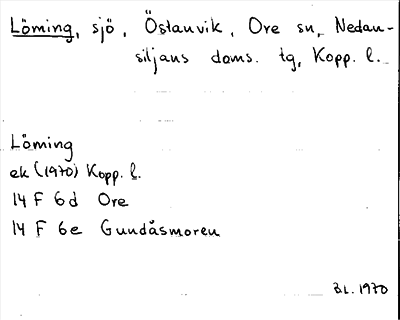 Löming, sjö, Östanvik, Ore sn, Nedan-
siljans doms. tg, Kopp. l.
Löming
ek (1970) Kopp. l.
14 F 6d Ore
14 F 6e Gundåsmoren
BL. 1970